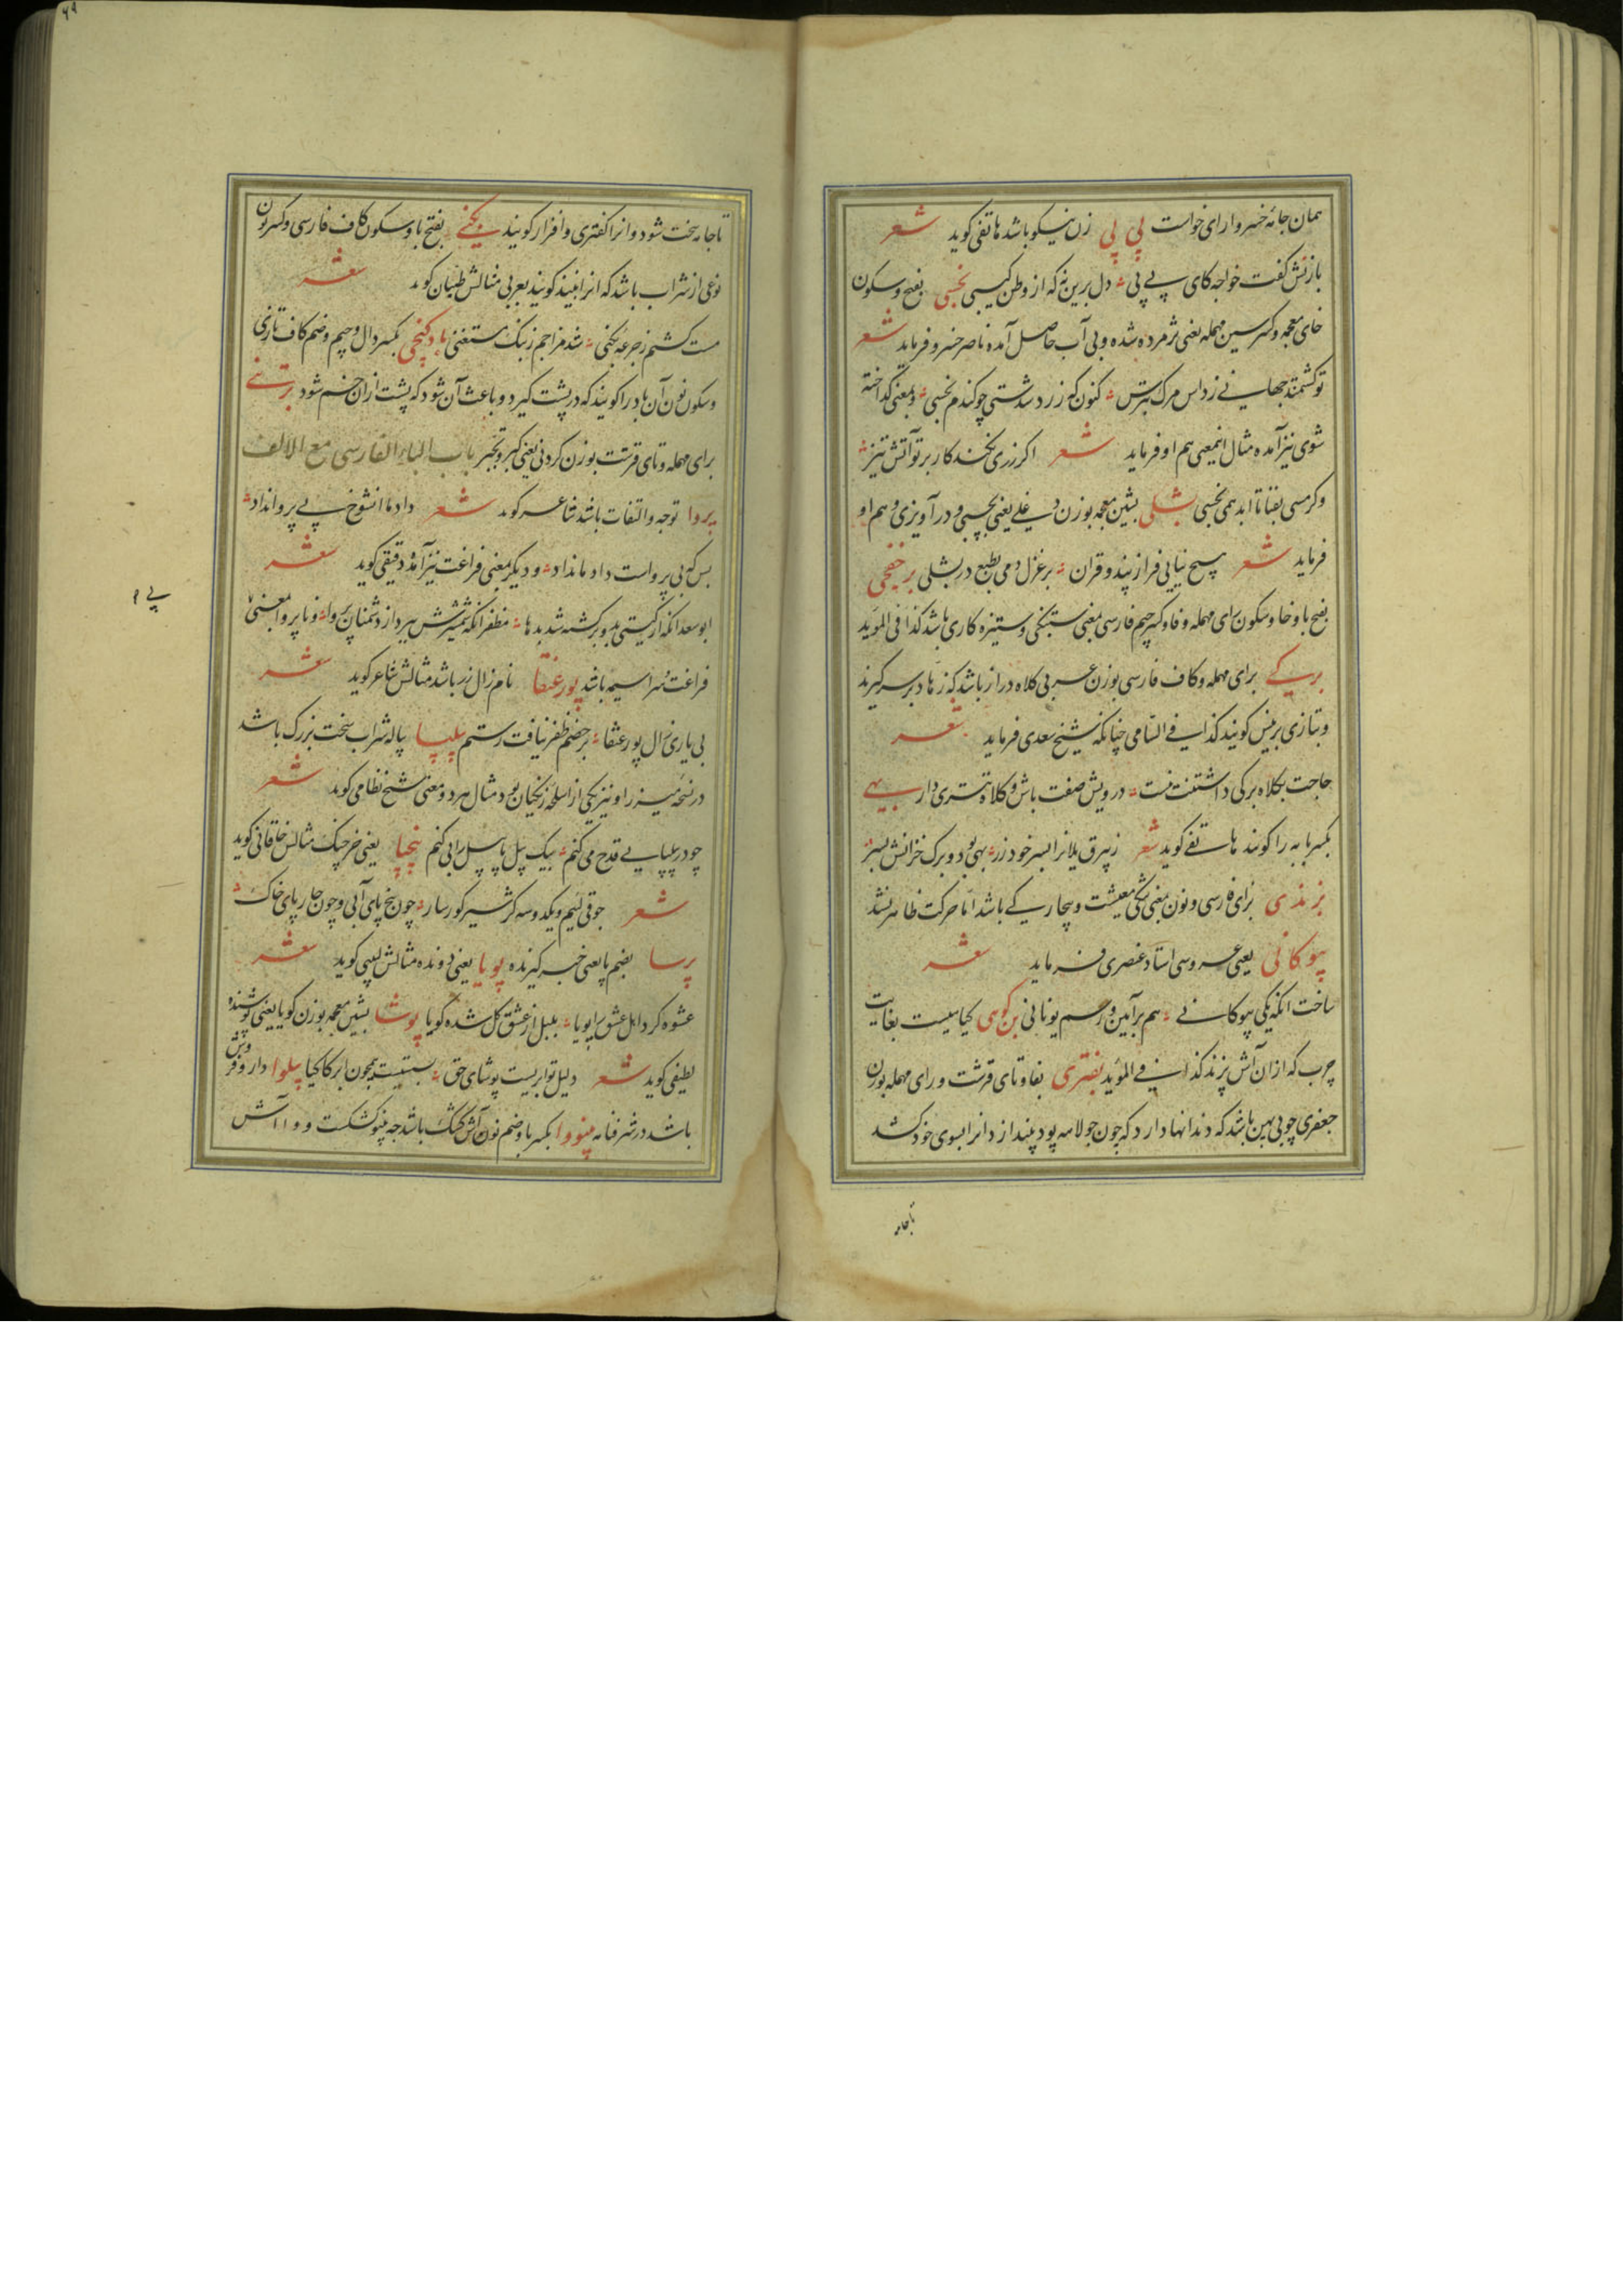 همان جائه خسرو ارای خواست پی پی زن نیکو باشد هاتفی کوید شعر
بازنش کفت خواجه کای پی پی دل برین نه که از وطن کیبی بخسی بفتح و سکون
خای معجمه و کسر سین مهمله یعنی پژمرده شده و بی آب حاصل آمده ناصر خسرو فرماید شعر
تو کشمند جهانی ز داس مرک بترس کنون که زرد شدستی چو کندم بخسی و بمعنی کداخته
شوی نیز آمده مثال اینمعنی هم او فرماید شعر اکر زری نخند کار بر تو آتش تیز
وکر مسی بقتا تا ابد همی بخسی بشلی بشین معجمه بوزن علی یعنی بچسبی و در آویزی و هم او
فرماید شعر هیچ نیابی فراز پند و قران بر غزل و می بطبع در بشلی برخفجی
بفتح با و خا و سکون رای مهمله و فا و کسر جیم فارسی بمعنی ستنبکی و ستیزه کاری باشد کذا فی الموید
برکی برای مهمله و کاف فارسی بوزن عربی کلاه دراز باشد که زهاد بر سر کیرند
و بتازی برنس کویند کذا فی السامی چنانکه شیخ سعدی فرماید شعر
حاجت بکلاه برکی داشتنت نیست درویش صفت باش و کلاه تتری دار بهی
بکسر با به را کویند هاتفی کوید شعر زبیرق یلانرا بسر خود زر بهی بود و برک خزانش بسر
بزندی برای فارسی و نون بمعنی تنکی معیشت و بیچارکی باشد اما حرکت ظاهر نشد
پیوکانی یعنی عروسی استاد عنصری فرماید شعر
ساخت انکه یکی پیوکانی هم بر آیین و رسم یونانی بن کوهی کیاهیست بغایت
چرب که از ان آش پزند کذا فی الموید بفتری بفا و تای قرشت و رای مهمله بوزن
جعفری چوبی پهن باشد که دندانها دارد که چون جولاهه پود پیندازد انرا بسوی خود کشد
تا جامه
۶۹
تا جامه سخت شود و انرا کفتری و افزار کویند بکنی بفتح با و سکون کاف فارسی و کسر نون
نوعی از شراب باشد که انرا نبیذ کویند بعربی مثالش طیان کوید شعر
مست کشتم ز جرعه بکنی شد مزاجم ز بنک مستغنی باد کنجی بکسر دال و جیم و ضم کاف تازی
و سکون نون آن باد را کویند که در پشت کیرد و باعث آن شود که پشت ازان خم شود برتنی
برای مهمله و تای قرشت بوزن کردنی یعنی کبر و تجبر باب الباء الفارسی مع الالف
پروا توجه و التفات باشد شاعر کوید شعر داد ما انشوخ بی پروا نداد
بس که بی پرواست داد ما نداد و دیکر بمعنی فراغت نیز آمده دقیقی کوید شعر
ابو سعد انکه از کیتی بدو برکشته شد بدها مظفر انکه شمشیرش ببرد از دشمنان پروا و نا پروا بمعنی
فراغت و سراسیمه باشد پور عنقا نام زال زر باشد مثالش شاعر کوید شعر
بی یاری زال پور عنقا بر خصم ظفر نیافت رستم پیلپا پیاله شراب سخت بزرک باشد
در نسخه میرزا و نیز یکی از اسلحه زنکیان بود مثال هر دو معنی شیخ نظامی کوید شعر
چو در پیلپایی قدح می کنم بیک پیل پا پیل را پی کنم پنجپا یعنی خرچنک مثالش خاقانی کوید
شعر جوقی لئیم و یکدوسه کژ سیر کور سار چون پنج پای آبی و چون چار پای خاک
پرسا بضم پا یعنی خبر کیرنده پویا یعنی دونده مثالش لبیبی کوید شعر
عشوه کرد اهل عشق را پویا بلبل از عشق کل شده کویا پوشا بشین معجمه بوزن کویا یعنی پوشنده
لطیفی کوید شعر دلیل تو ابریست پوشای حق پیلوا دارو فروش
باشد در شرفنامه پینووا بکسر با و ضم نون آش کشک باشد چه پینو کشکست و وا آش